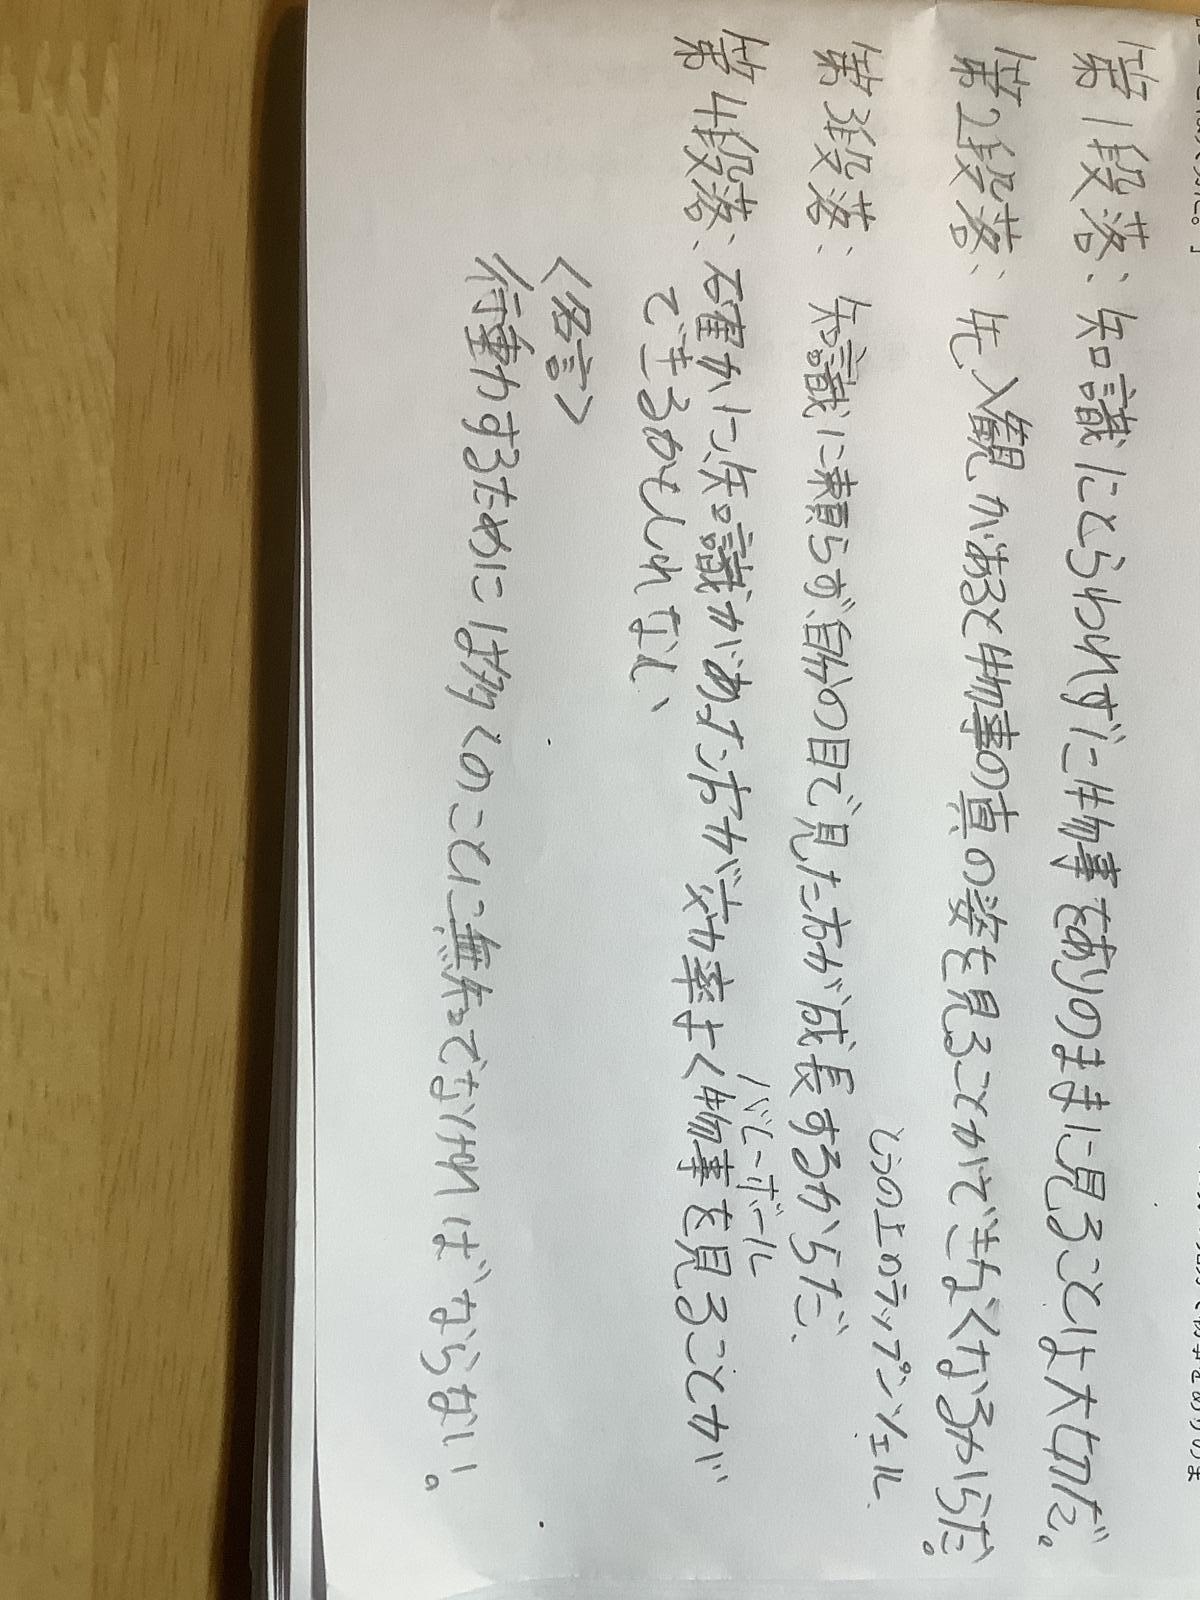 第1段落：知識にとらわれずに物事をありのままに見ることは大切だ。
第2段落：先入観があると物事の真の姿を見ることができなくなるからだ。
とうの上のラプンツェル
第3段落：知識に頼らず自分の目で見た方が成長するからだ。
バレーボール
第4段落：確かに知識があった方が効率よく物事を見ることが
できるかもしれない、
〈名言〉
行動するためには多くのことに無知でなければならない。